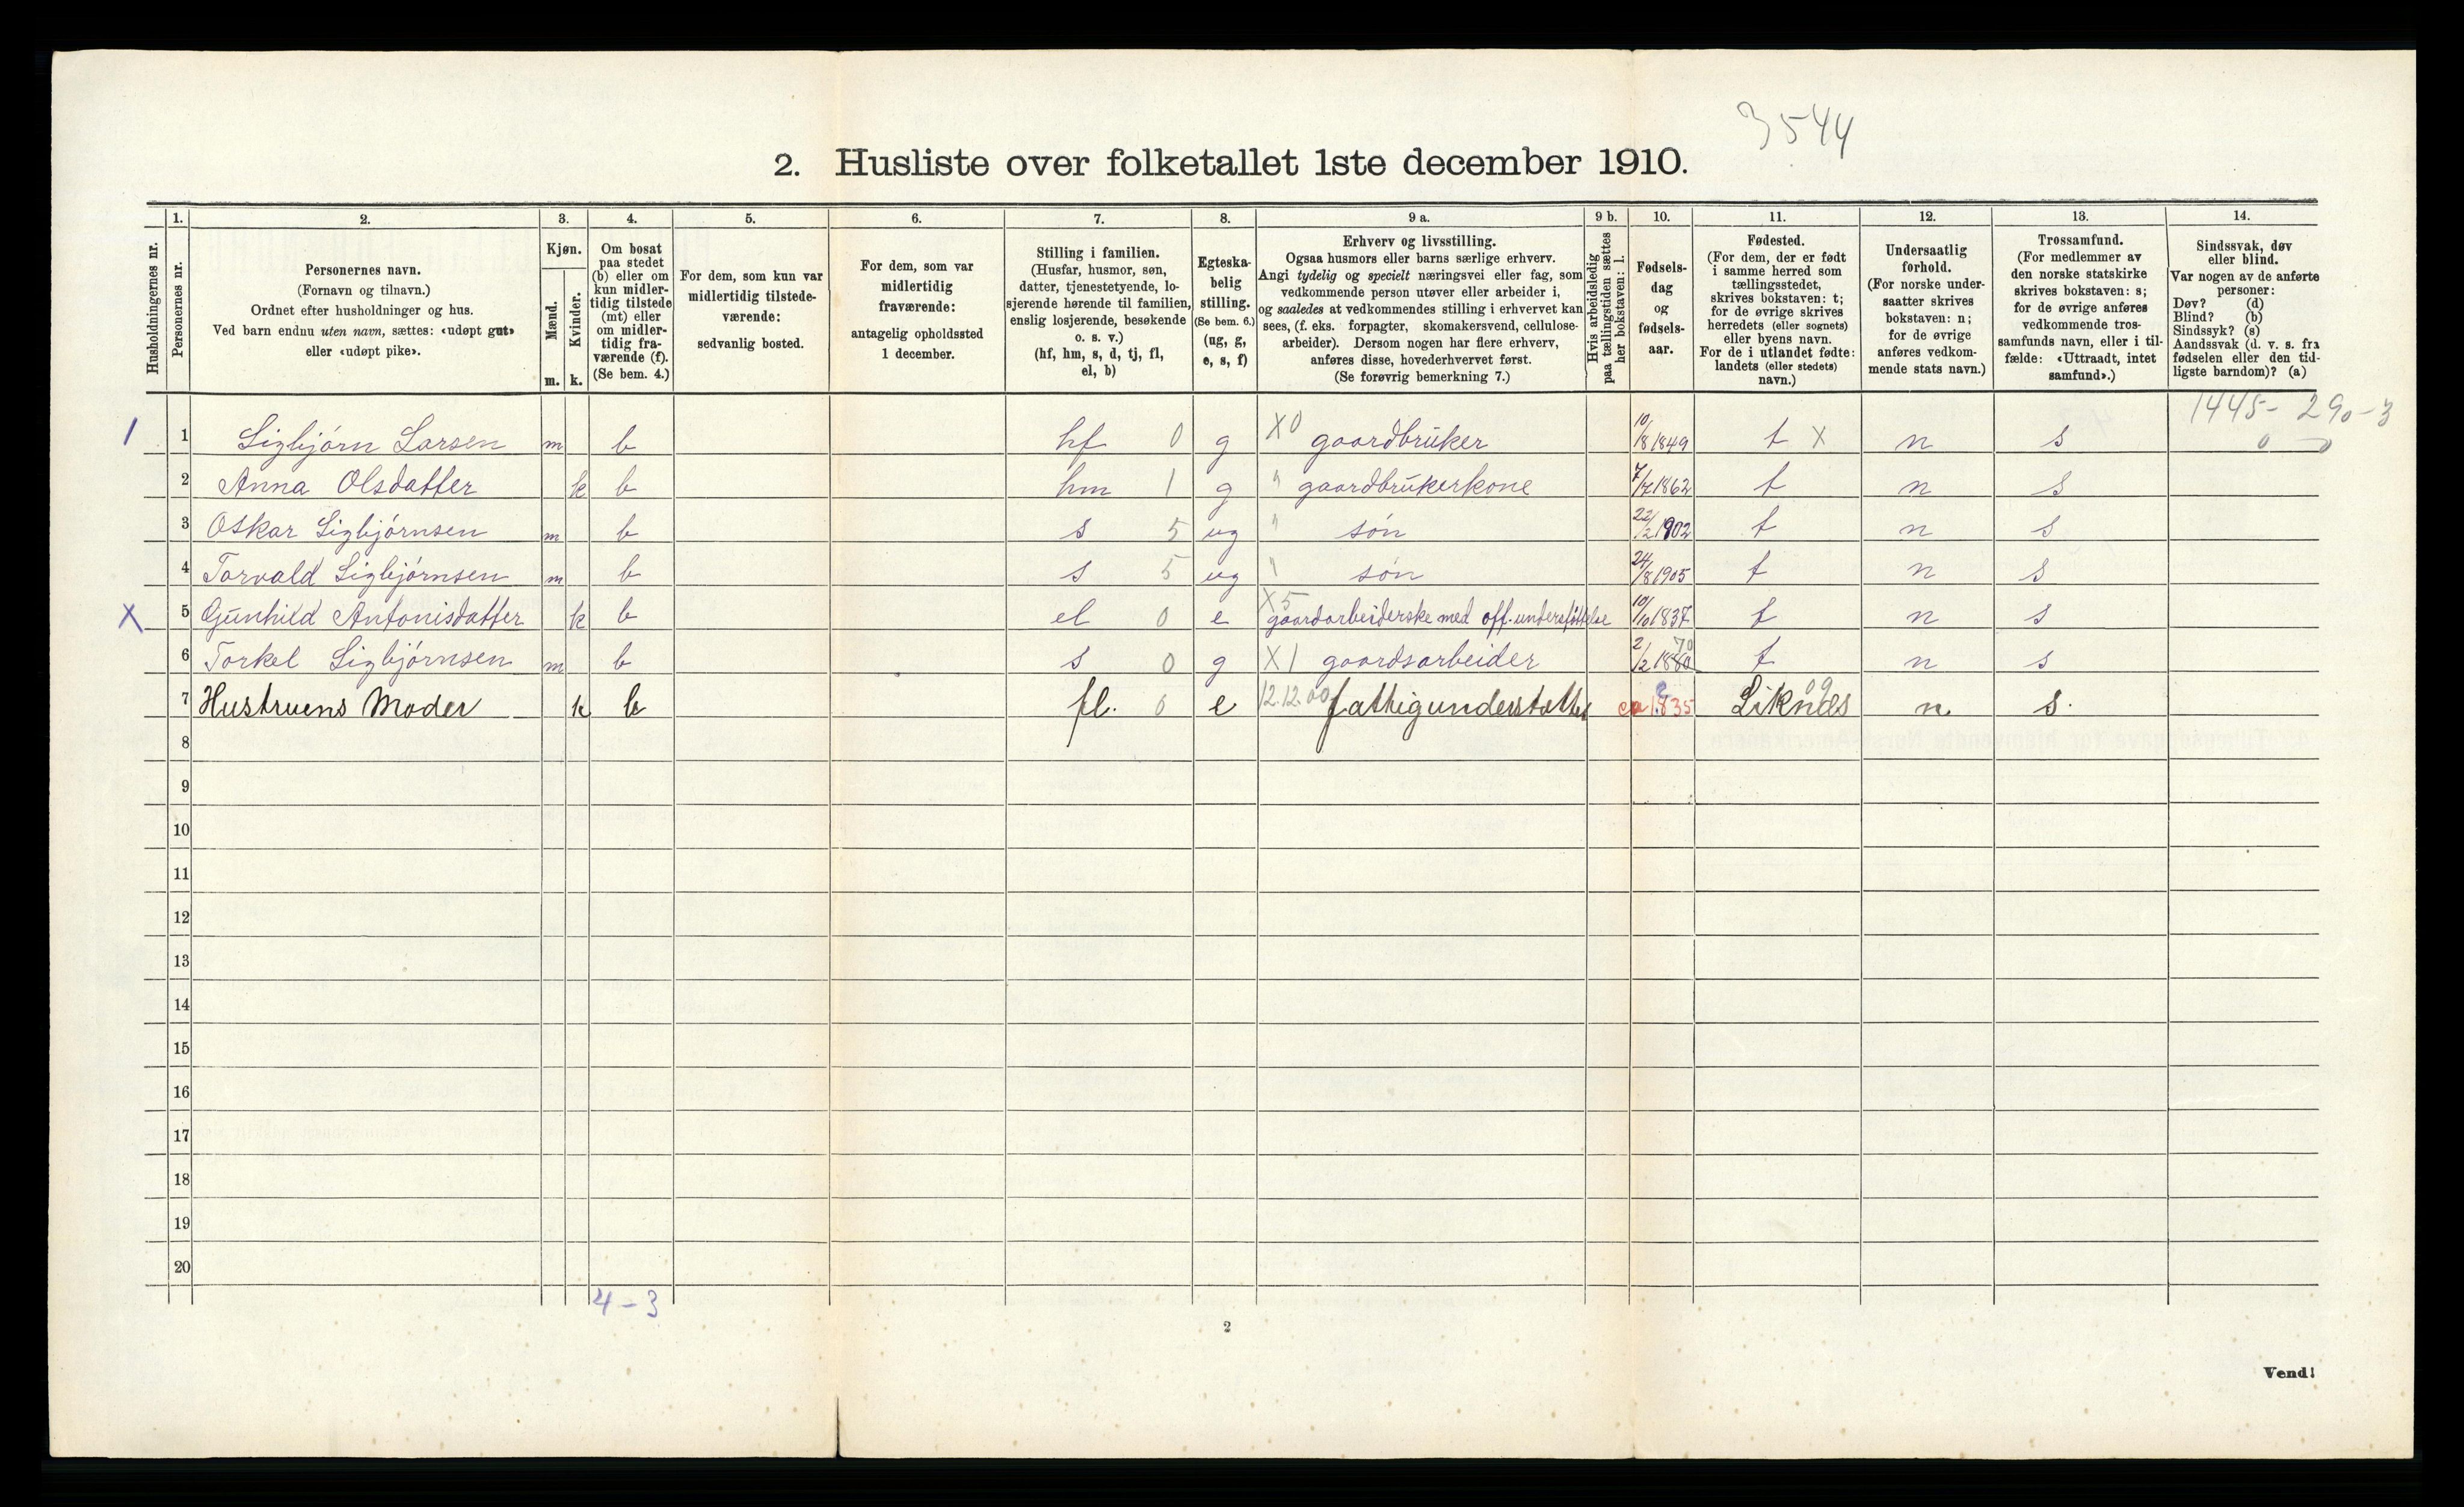 3544
2. Husliste over folketallet 1ste december 1910.
Husholdningernes nr.
1.
Personernes nr.
2.
Personernes navn.
(Fornavn og tilnavn.)
Ordnet efter husholdninger og hus.
Ved barn endnu uten navn, sættes: «udøpt gut»
eller «udøpt pike».
3.
Kjøn.
Mænd.
Kvinder.
m. k.
4.
Om bosat
paa stedet
(b) eller om
kun midler-
tidig tilstede
(mt) eller
om midler-
tidig fra-
værende (f).
(Se bem. 4.)
5.
For dem, som kun var
midlertidig tilstede-
værende:
sedvanlig bosted.
6.
For dem, som var
midlertidig
fraværende:
antagelig opholdssted
1 december.
7.
Stilling i familien.
(Husfar, husmor, søn,
datter, tjenestetyende, lo-
sjerende hørende til familien,
enslig losjerende, besøkende
o. s. v.)
(hf, hm, s, d, tj, fl,
el, b)
8.
Egteska-
belig
stilling.
(Se bem. 6.)
(ug, g,
e, s, f)
9 a.
Erhverv og livsstilling.
Ogsaa husmors eller barns særlige erhverv.
Angi tydelig og specielt næringsvei eller fag, som
vedkommende person utøver eller arbeider i,
og saaledes at vedkommendes stilling i erhvervet kan
sees, (f. eks. forpagter, skomakersvend, cellulose-
arbeider). Dersom nogen har flere erhverv,
anføres disse, hovederhvervet først.
(Se forøvrig bemerkning 7.)
9 b.
Hvis arbeidsledig
paa tællingstiden sættes
her bokstaven: l.
10.
Fødsels-
dag
og
fødsels-
aar.
11.
Fødested.
(For dem, der er født
i samme herred som
tællingsstedet,
skrives bokstaven: t;
for de øvrige skrives
herredets (eller sognets)
eller byens navn.
For de i utlandet fødte:
landets (eller stedets)
navn.)
12.
Undersaatlig
forhold.
(For norske under-
saatter skrives
bokstaven: n;
for de øvrige
anføres vedkom-
mende stats navn.)
13.
Trossamfund.
(For medlemmer av
den norske statskirke
skrives bokstaven: s;
for de øvrige anføres
vedkommende tros-
samfunds navn, eller i til-
fælde: «Uttraadt, intet
samfund».)
14.
Sindssvak, døv
eller blind.
Var nogen av de anførte
personer:
Døv? (d)
Blind? (b)
Sindssyk? (s)
Aandssvak (d. v. s. fra
fødselen eller den tid-
ligste barndom)? (a)
1445- 290-3
1 1 Sigbjørn Larsen m b hf 0 g X0 gaardbruker 10/8 1849 t X n s 0 0
2 Anna Olsdatter k b hm 1 g " gaardbrukerkone 7/7 1862 t n s
3 Oskar Sigbjørnsen m b s 5 ug " søn 22/2 1902 t n s
4 Torvald Sigbjørnsen m b s 5 ug " søn 24/8 1905 t n s
X 5 Gunhild Antonisdatter k b el 0 e X5 gaardarbeiderske med off. understøttelse 10/10 1837 t n s
6 Torkel Sigbjørnsen m b s 0 g X1 gaardsarbeider 2/2 1880 70 t n s
7 Hustruens Moder k b fl. 0 e 12.12.00 fattigunderstøttet ca 1835 ? Liknes 09 n s.
8
9
10
11
12
13
14
15
16
17
18
19
20
4-3
2
Vend!